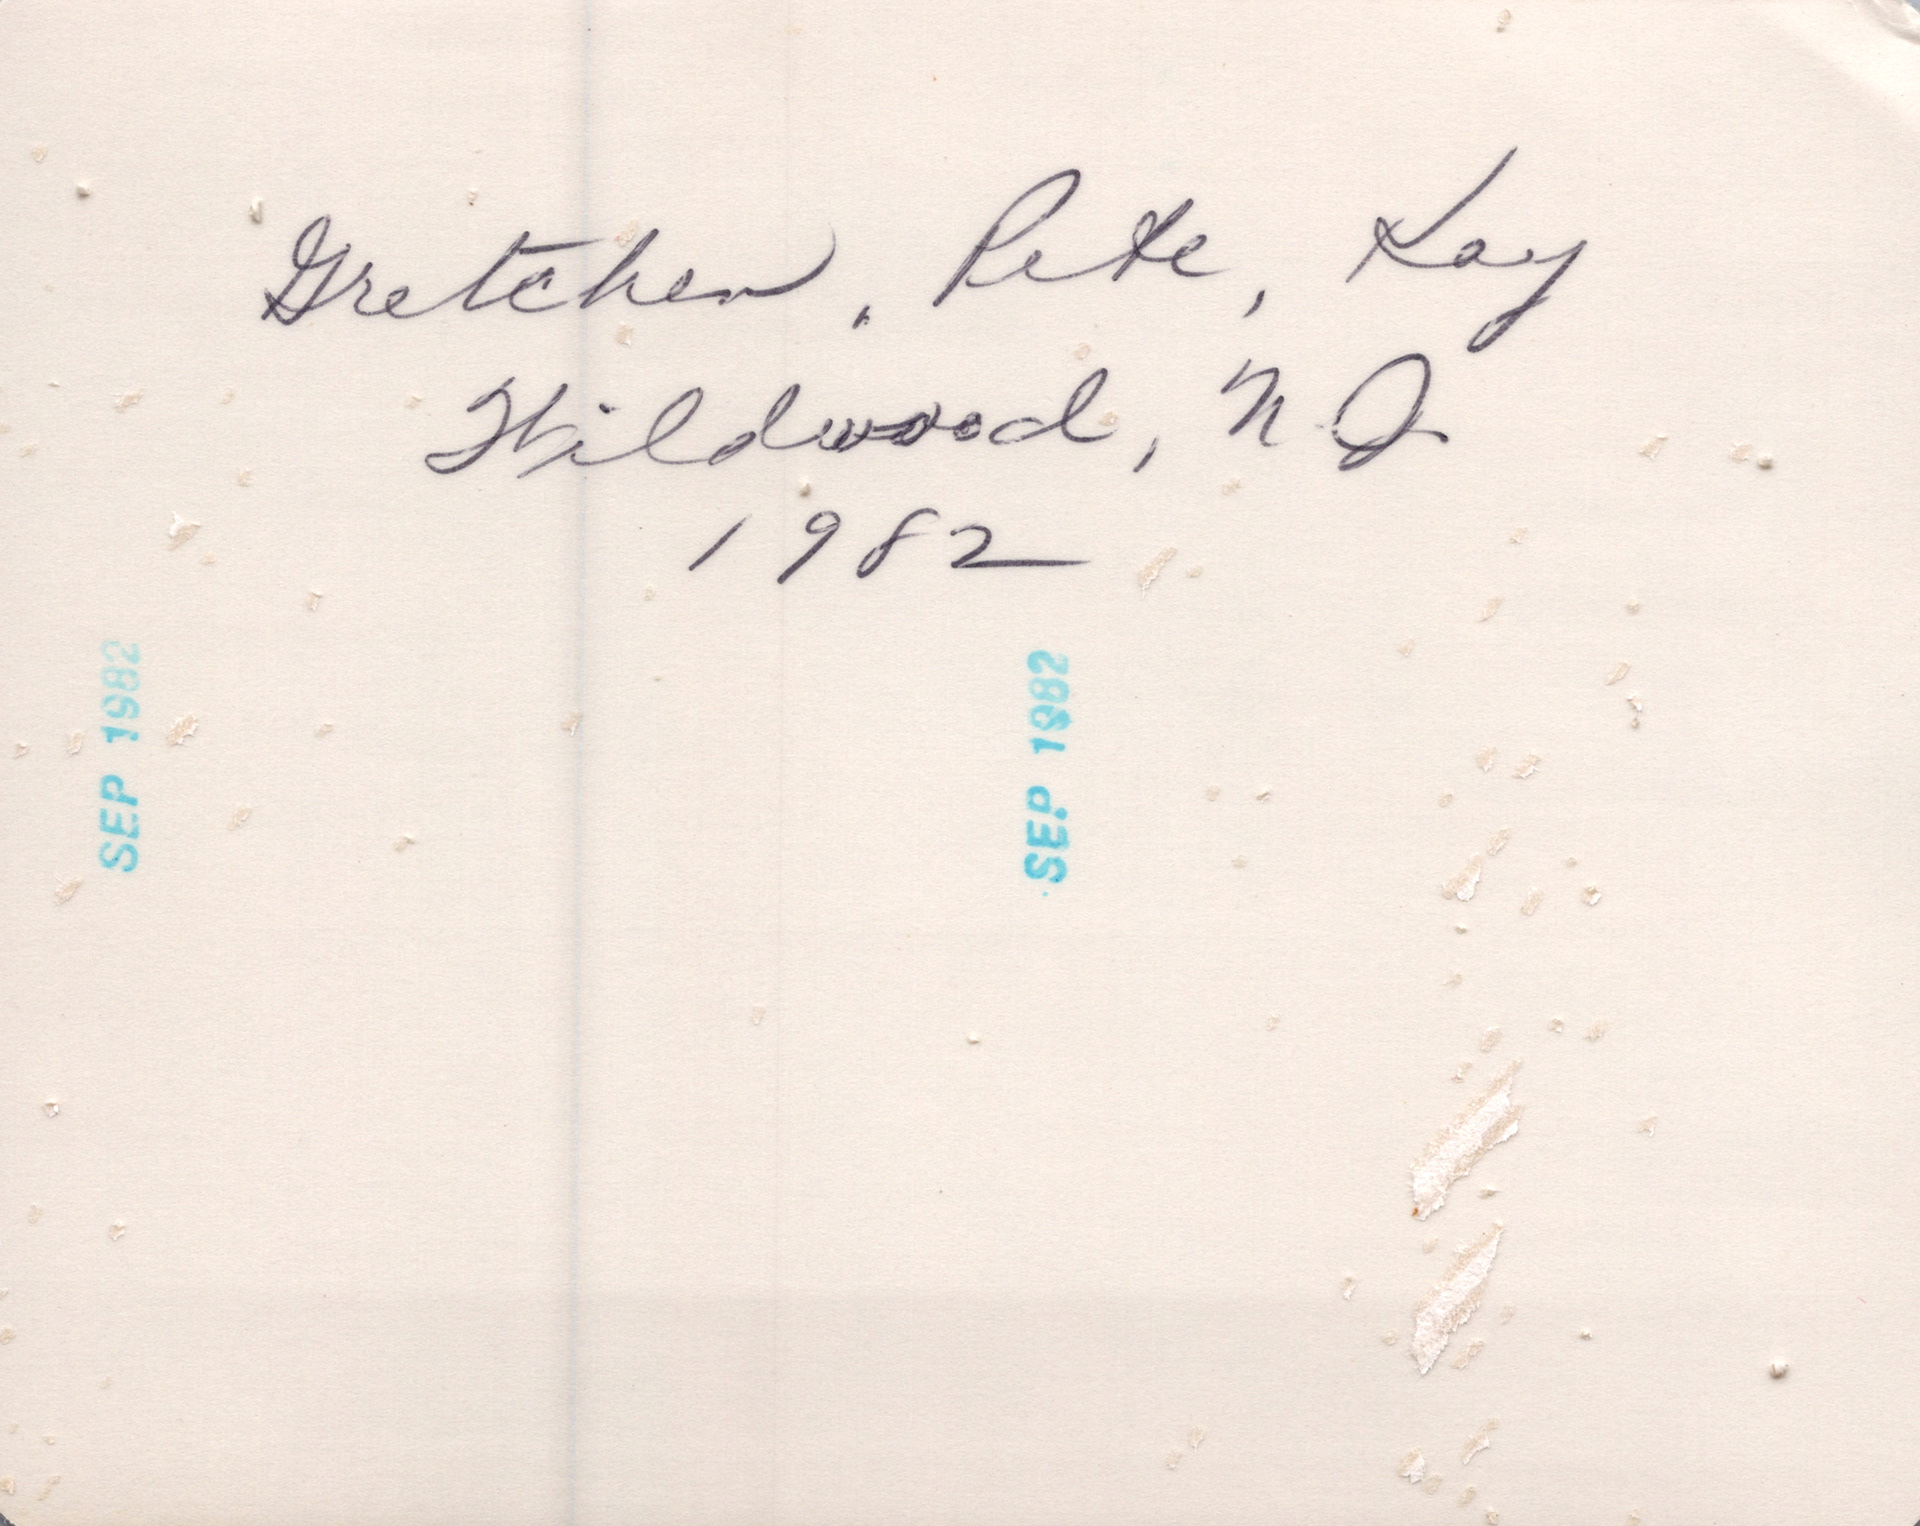 Gretchen, Pete, Kay
Wildwood, N.J.
1982
SEP 1982
SEP 1982